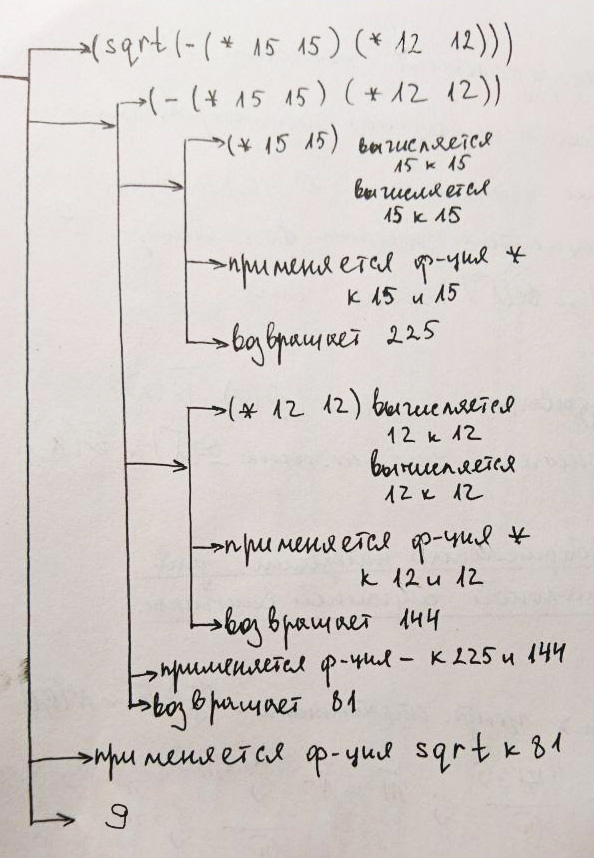 (sqrt (-(* 15 15) (* 12 12)))
(-(* 15 15) (* 12 12))
(* 15 15) вычисляется
15 к 15
вычисляется
15 к 15
применяется ф-ция *
к 15 и 15
возвращает 225
(* 12 12) вычисляется
12 к 12
вычисляется
12 к 12
применяется ф-ция *
к 12 и 12
возвращает 144
применяется ф-ция - к 225 и 144
возвращает 81
применяется ф-ция sqrt к 81
9